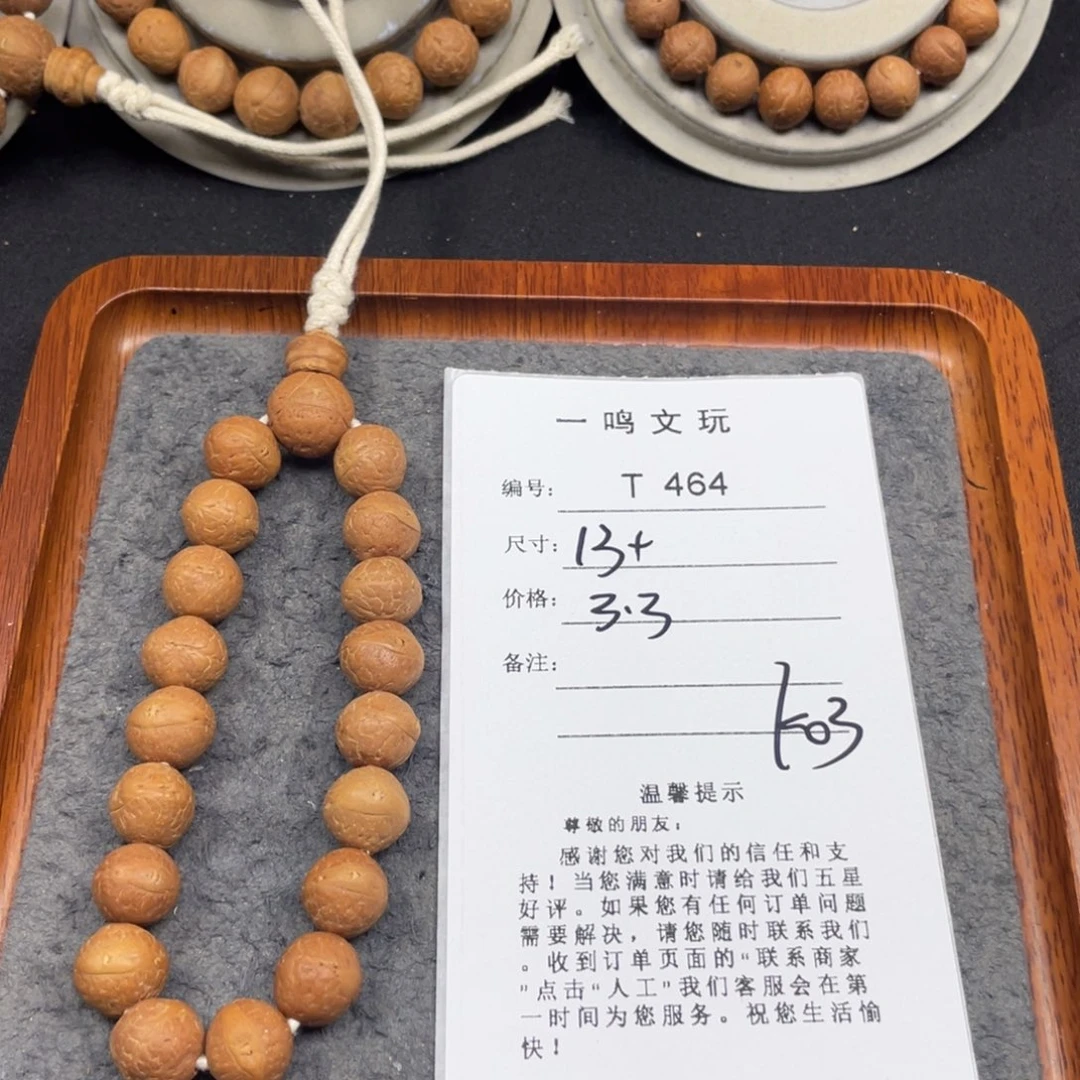 一鸣文玩
编号： T 464
尺寸： 13+
价格： 3.3
备注：
K03
温馨提示
尊敬的朋友：
感谢您对我们的信任和支
持！当您满意时请给我们五星
好评。如果您有任何订单问题
需要解决，请您随时联系我们
。收到订单页面的“联系商家
”点击“人工”我们客服会在第
一时间为您服务。祝您生活愉
快！